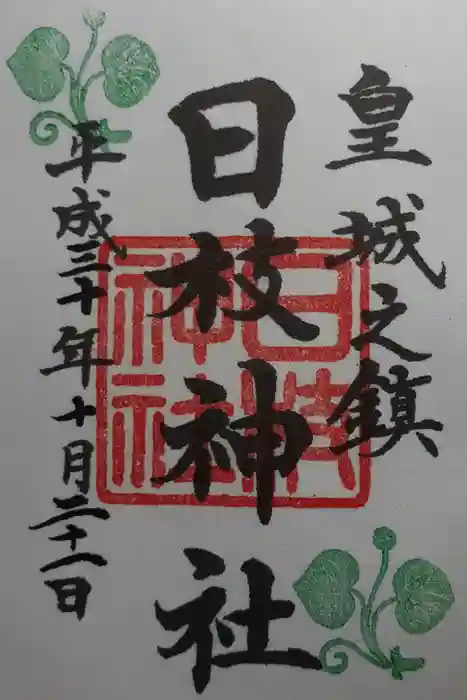 皇城之鎮
日枝神社
平成三十年十月二十一日
日枝神社